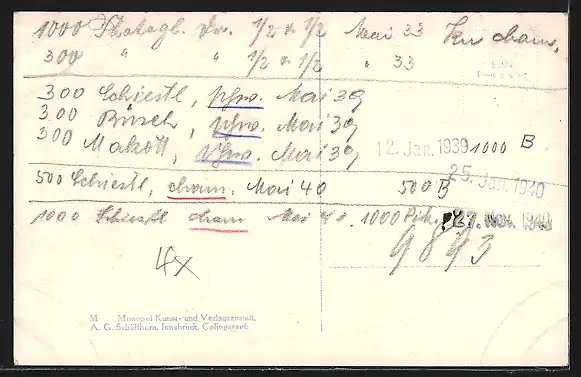 1000 Photogl. Dr. 1/2 & 1/2 Mai 33 cham.
300 " " 1/2 & 1/2 " 33
300 Schiestl, Mai 39
300 Busch, Mai 39
300 Makott, Mai 39
12. Jan. 1939 1000 B
25. Jan. 1940
500 Schiestl, cham. Mai 40 500 B
1000 Schiestl cham Mai 1000 27. Nov. 1940
9893
4x
M Monopol Kunst- und Verlagsanstalt,
A. G. Schöllhorn, Innsbruck, Colingasse6